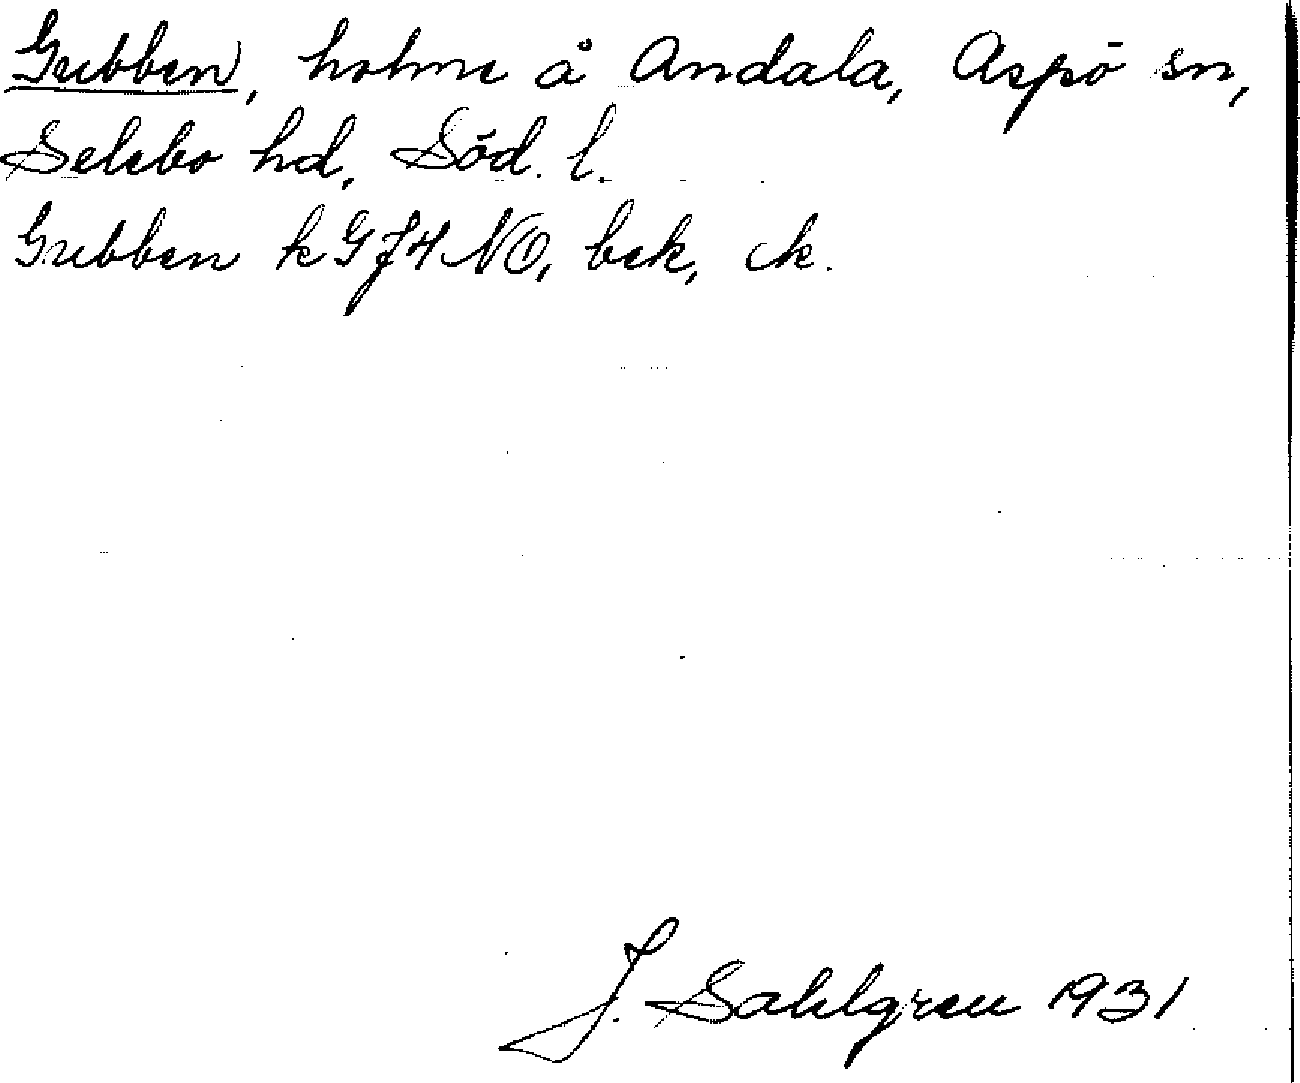 Gubben, holme å Andala, Aspö sn,
Selebo hd, Söd. l.
Gubben k GJ4 NO, bek, ek.
J. Sahlgren 1931